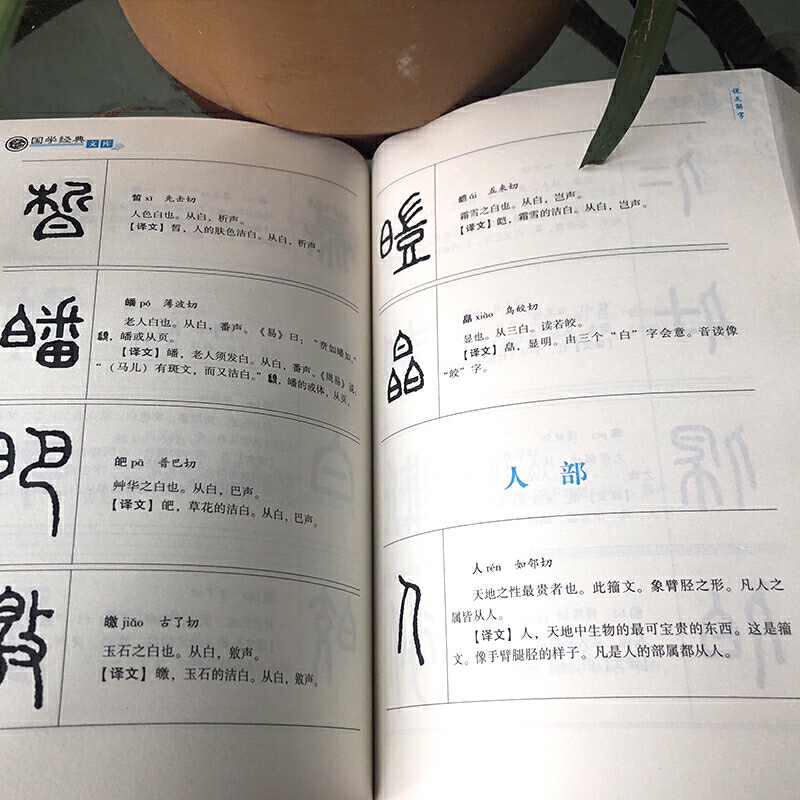 国学经典
文库
皙 xī 先击切
人色白也。从白，析声。
【译文】皙，人的肤色洁白。从白，析声。
皤 pó 薄波切
老人白也。从白，番声。《易》曰：“贲如皤如。”
，皤或从页。
【译文】皤，老人须发白。从白，番声。《周易》说：
“（马儿）有斑文，而又洁白。” ，皤的或体，从页。
皅 pā 普巴切
艸华之白也。从白，巴声。
【译文】皅，草花的洁白。从白，巴声。
皦 jiǎo 古了切
玉石之白也。从白，敫声。
【译文】皦，玉石的洁白。从白，敫声。
说文解字
皚 ái 五来切
霜雪之白也。从白，岂声。
【译文】皑，霜雪的洁白。从白，岂声。
皛 xiǎo 乌皎切
显也。从三白。读若皎。
【译文】皛，显明。由三个“白”字会意。音读像
“皎”字。
人部
人 rén 如邻切
天地之性最贵者也。此籀文。象臂胫之形。凡人之
属皆从人。
【译文】人，天地中生物的最可宝贵的东西。这是籀
文。像手臂腿胫的样子。凡是人的部属都从人。